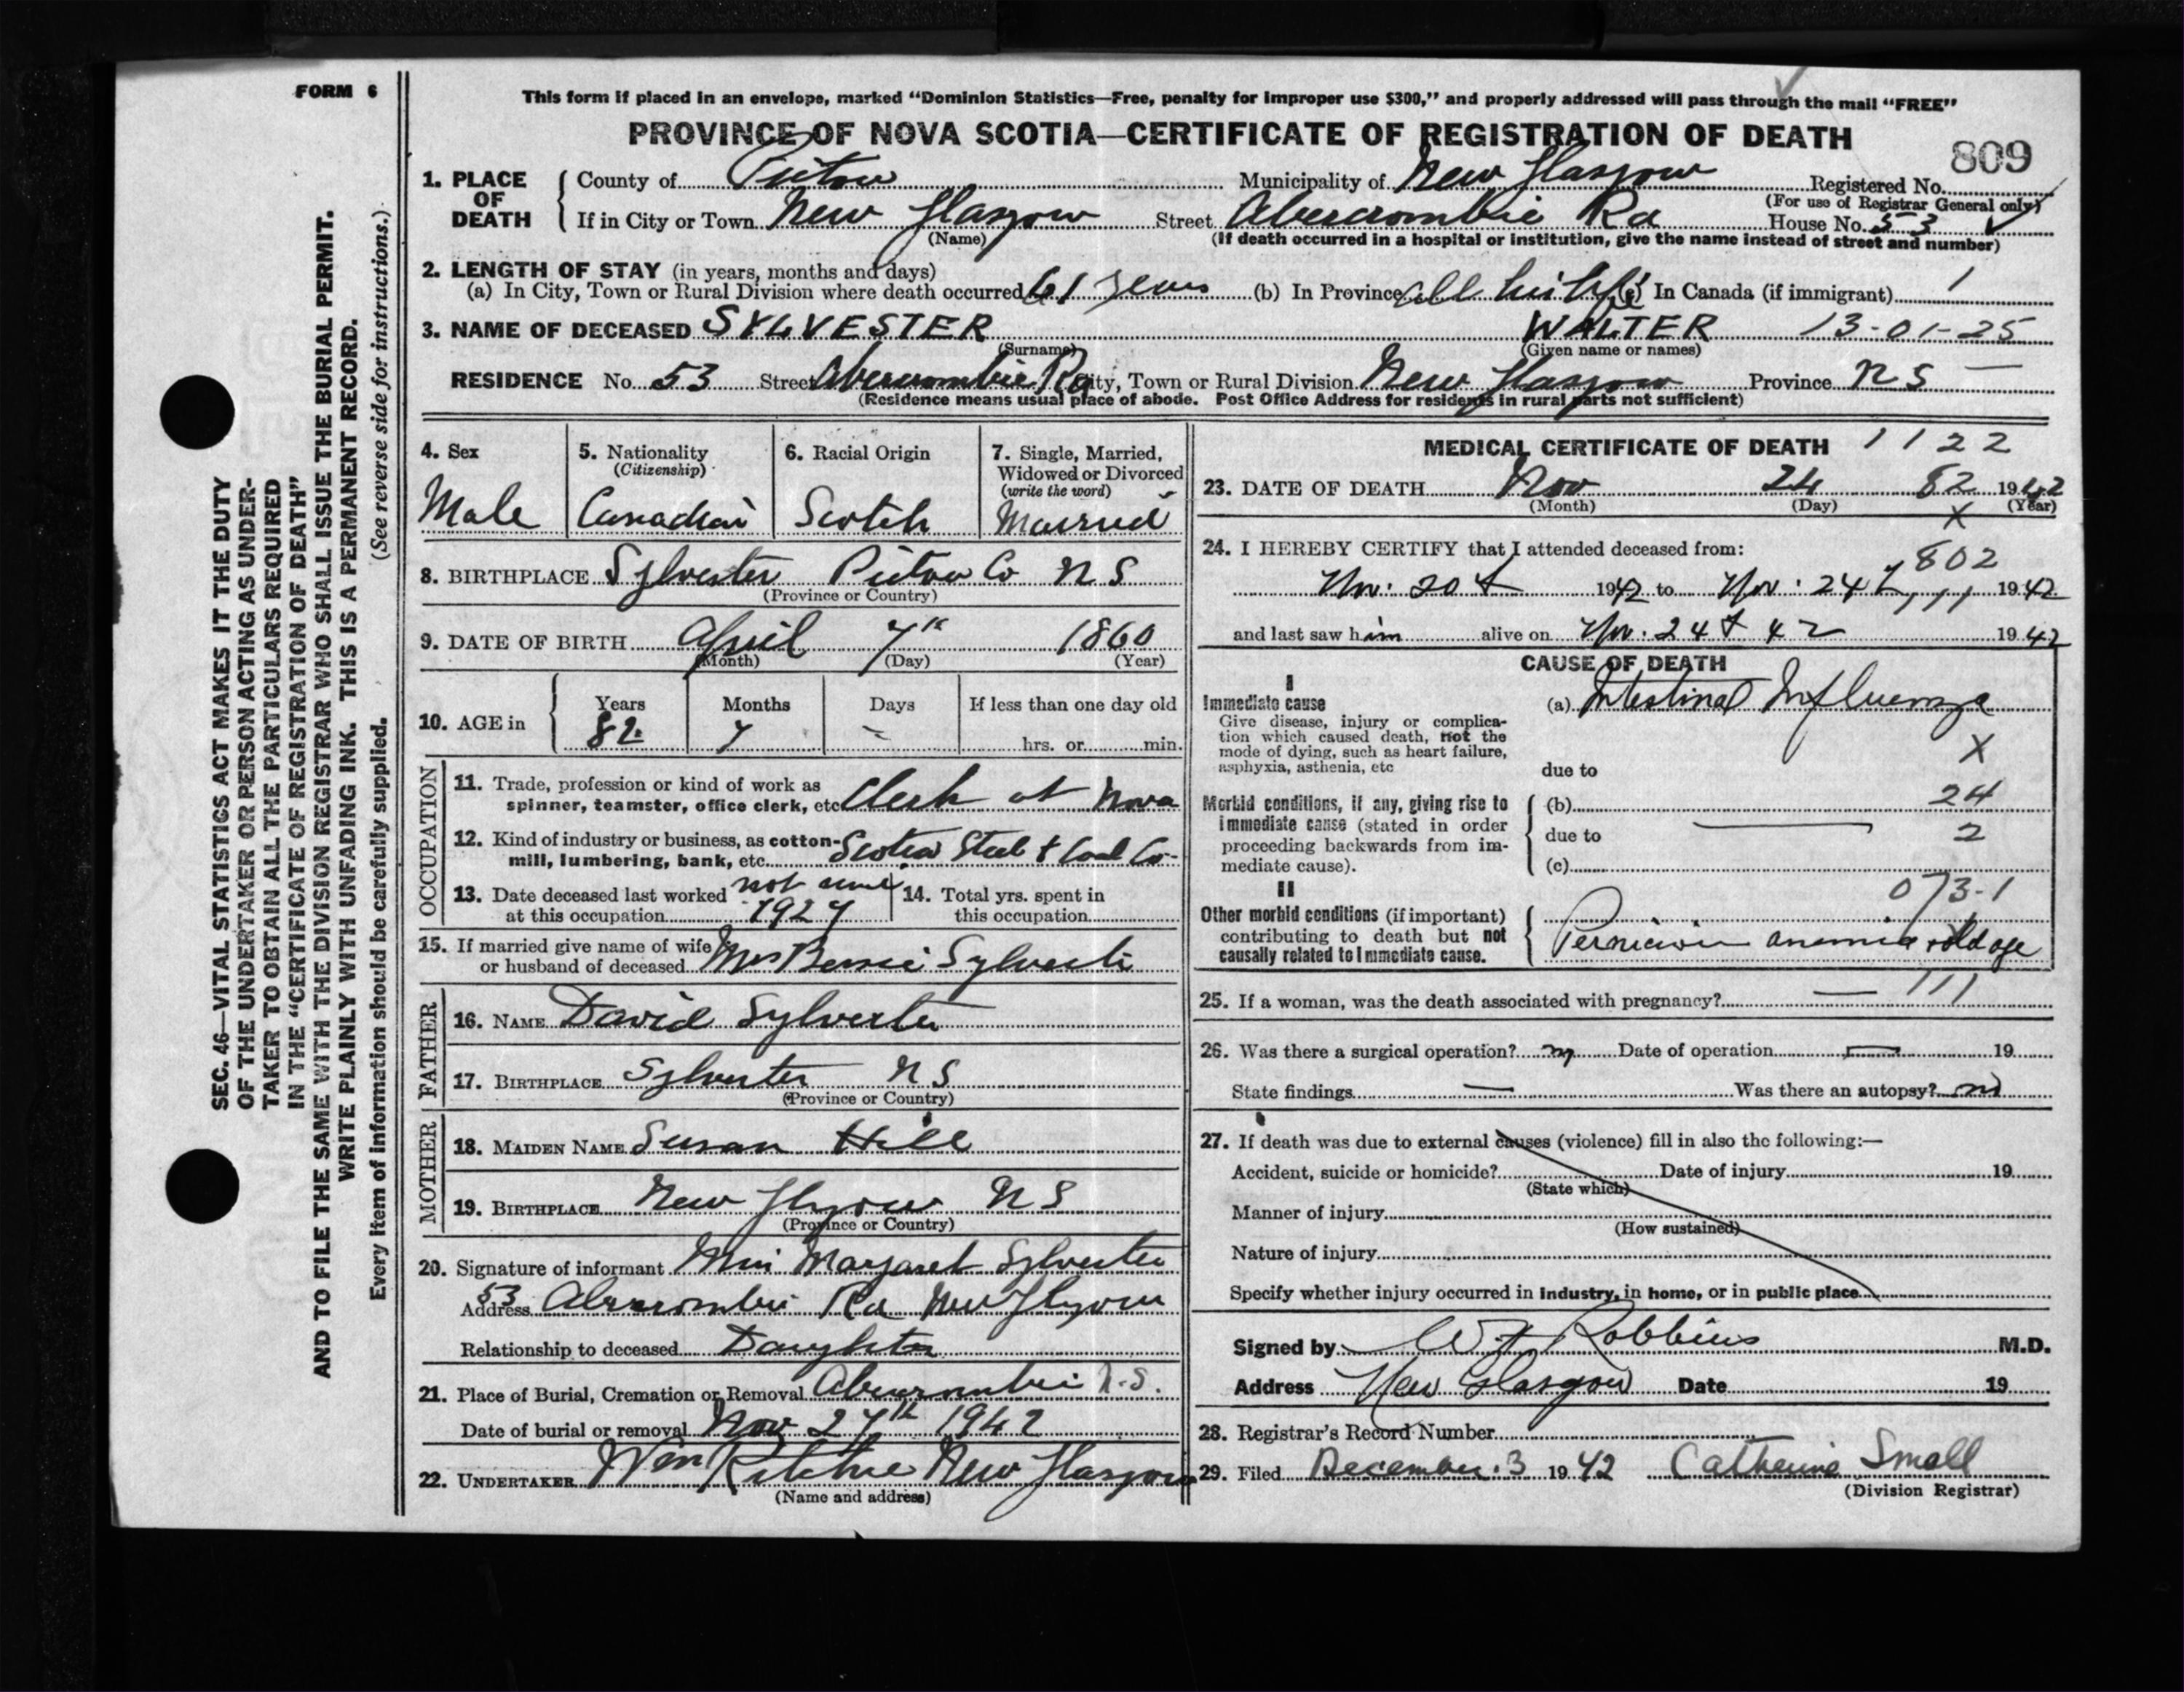 FORM 6
This form if placed in an envelope, marked “Dominion Statistics—Free, penalty for improper use $300,” and properly addressed will pass through the mail “FREE”
PROVINCE OF NOVA SCOTIA—CERTIFICATE OF REGISTRATION OF DEATH
809
1. PLACE OF DEATH County of Pictou Municipality of New Glasgow Registered No.
(For use of Registrar General only)
If in City or Town New Glasgow Street Abercrombie Rd House No. 53
(Name) (If death occurred in a hospital or institution, give the name instead of street and number)
2. LENGTH OF STAY (in years, months and days)
(a) In City, Town or Rural Division where death occurred 61 years (b) In Province all his life (c) In Canada (if immigrant) 1
3. NAME OF DECEASED SYLVESTER WALTER 13-01-25
(Surname) (Given name or names)
RESIDENCE No. 53 Street Abercrombie Rd City, Town or Rural Division New Glasgow Province N S
(Residence means usual place of abode. Post Office Address for residents in rural parts not sufficient)
4. Sex 5. Nationality 6. Racial Origin 7. Single, Married,
(Citizenship) Widowed or Divorced
(write the word)
Male Canadian Scotch Married
8. BIRTHPLACE Sylvester Pictou Co N S
(Province or Country)
9. DATE OF BIRTH April 7th 1860
(Month) (Day) (Year)
10. AGE in Years Months Days If less than one day old
82 7 - hrs. or min.
OCCUPATION
11. Trade, profession or kind of work as
spinner, teamster, office clerk, etc. Clerk at Nova
12. Kind of industry or business, as cotton-
mill, lumbering, bank, etc. Scotia Steel & Coal Co.
13. Date deceased last worked not since
at this occupation 1927
14. Total yrs. spent in
this occupation
15. If married give name of wife
or husband of deceased Mrs Bessie Sylvester
FATHER
16. NAME David Sylvester
17. BIRTHPLACE Sylvester N S
(Province or Country)
MOTHER
18. MAIDEN NAME Susan Hill
19. BIRTHPLACE New Glasgow N S
(Province or Country)
20. Signature of informant Miss Margaret Sylvester
Address 53 Abercrombie Rd New Glasgow
Relationship to deceased Daughter
21. Place of Burial, Cremation or Removal Abercrombie N.S.
Date of burial or removal Nov 27th 1942
22. UNDERTAKER Wm Ritchie New Glasgow
(Name and address)
MEDICAL CERTIFICATE OF DEATH 1122
23. DATE OF DEATH Nov 24 82 1942
(Month) (Day) (Year)
X
24. I HEREBY CERTIFY that I attended deceased from:
802
Nov. 20 1942 to Nov. 24 111 1942
and last saw him alive on Nov. 24 42 1942
CAUSE OF DEATH
I
Immediate cause (a) Intestinal Influenza
Give disease, injury or complica-
tion which caused death, not the
mode of dying, such as heart failure,
asphyxia, asthenia, etc
X
due to
Morbid conditions, if any, giving rise to (b) 24
immediate cause (stated in order
proceeding backwards from im-
mediate cause).
due to 2
(c)
II
073-1
Other morbid conditions (if important)
contributing to death but not
causally related to immediate cause.
Pernicious anemia & old age
25. If a woman, was the death associated with pregnancy? — 111
26. Was there a surgical operation? no Date of operation — 19
State findings — Was there an autopsy? no
27. If death was due to external causes (violence) fill in also the following:—
Accident, suicide or homicide? Date of injury 19
(State which)
Manner of injury
(How sustained)
Nature of injury
Specify whether injury occurred in industry, in home, or in public place
Signed by Robbins M.D.
Address New Glasgow Date 19
28. Registrar's Record Number
29. Filed December 3 1942 Catherine Small
(Division Registrar)
SEC. 46—VITAL STATISTICS ACT MAKES IT THE DUTY
OF THE UNDERTAKER OR PERSON ACTING AS UNDER-
TAKER TO OBTAIN ALL THE PARTICULARS REQUIRED
IN THE “CERTIFICATE OF REGISTRATION OF DEATH”
AND TO FILE THE SAME WITH THE DIVISION REGISTRAR WHO SHALL ISSUE THE BURIAL PERMIT.
WRITE PLAINLY WITH UNFADING INK. THIS IS A PERMANENT RECORD.
Every item of information should be carefully supplied. (See reverse side for instructions.)